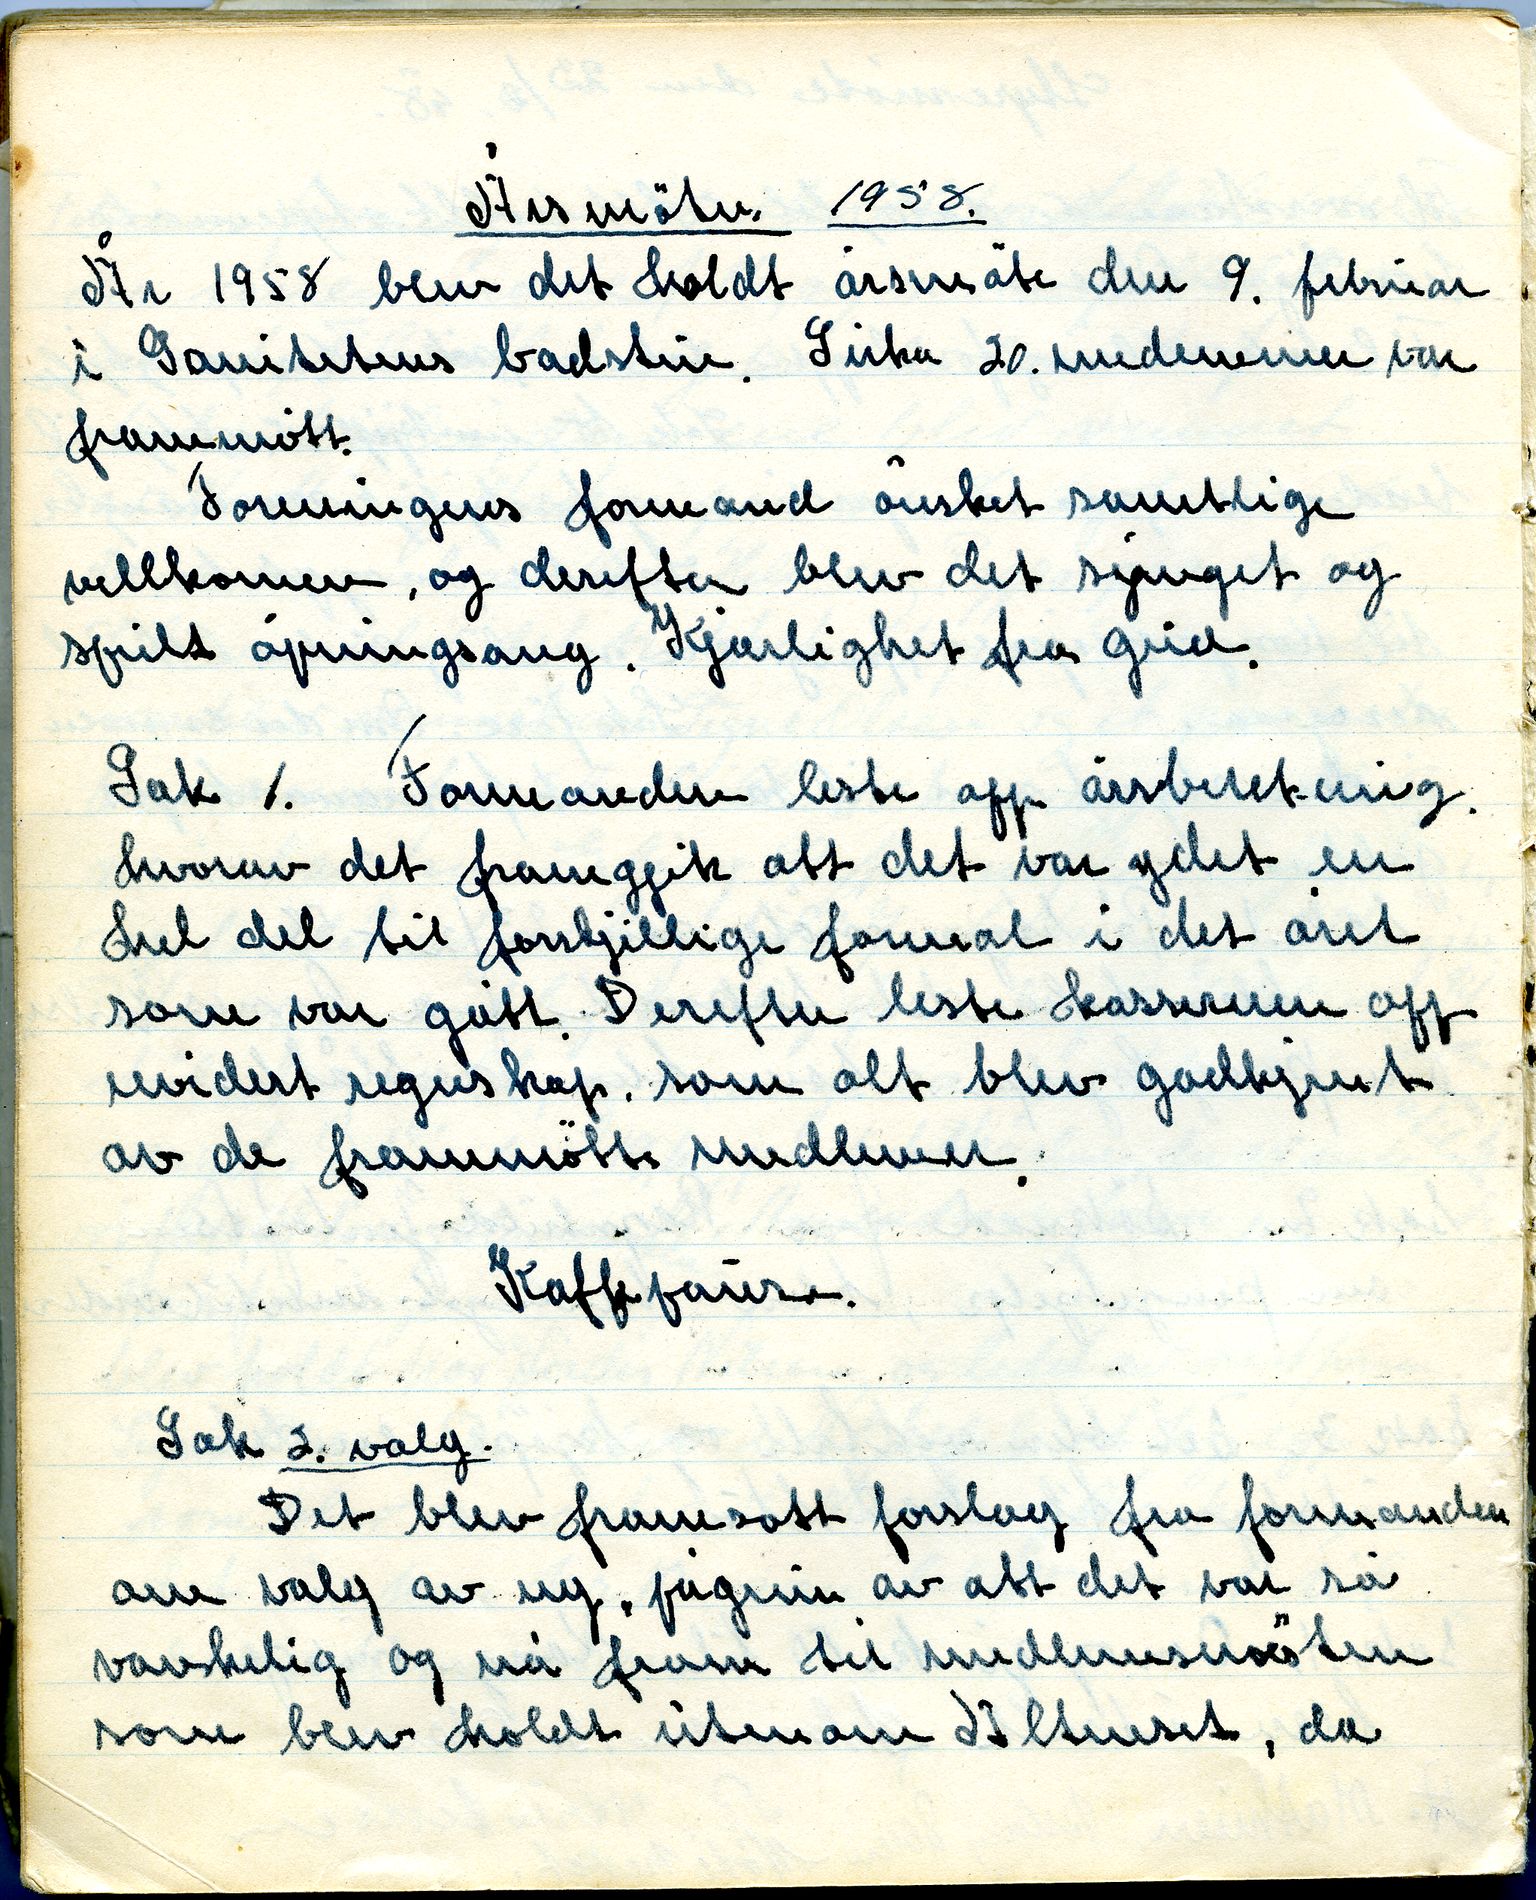 Årsmöte. 1958.
År 1958 blev det holdt årsmöte den 9. februar
i Sanitetens badstue. Sirka 20. medemmer var
frammött.
Foreningens formand önsket samtlige
vellkomen, og derefter blev det sjunget og
spilt åpningsang. Kjærlighet fra Gud.
Sak 1. Formanden leste opp årsberetning.
hvorav det framgjik att det var ydet en
hel del til forskjillige formål i det året
som var gått. Derefter leste kasseren opp
revidert regnskap. som alt blev godkjent
av de frammötte medlemer.
Kaffepause.
Sak 2. valg.
Det blev framsatt forslag fra formanden
om valg av ny, pågrun av att det var så
vanskelig og nå fram til medlemsmöten
som blev holdt utenom Altneset, da